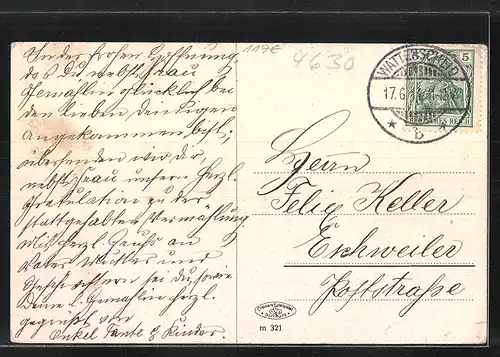 In der frohen Hoffnung,
daß Du, nebst Frau
Gemahlin glücklich bei
den lieben Deinigen
angekommen bist,
übersenden wir Dir,
nebst Frau unsern herzl.
Gratulation zu der
stattgehabten Vermählung
Mit herzl. Gruß an
Vater Mutter und
Geschwistern sei Du, sowie
Deine l. Gemahlin herzl.
gegrüßt von
Onkel Tante & Kinder.
117E
4630
WATTENSCHEID
17.6.
* b *
5
Herrn
Felix Keller
Eschweiler
Poststraße
m 321